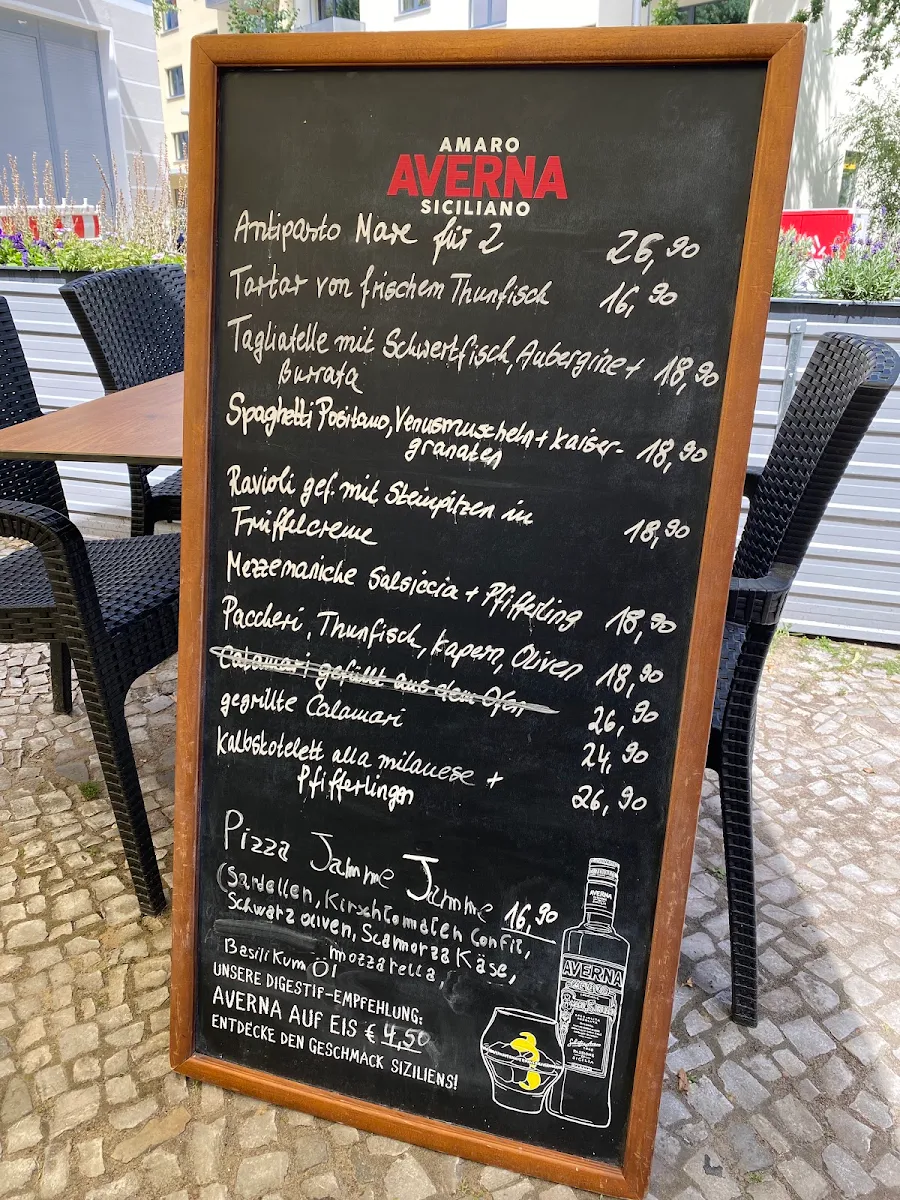 AMARO
AVERNA
SICILIANO
Antipasto Mare für 2 26,90
Tartar von frischem Thunfisch 16,90
Tagliatelle mit Schwertfisch, Aubergine + 18,90
Burrata
Spaghetti Positano, Venusmuscheln + Kaiser- 18,90
granaten
Ravioli gef. mit Steinpilzen in
Trüffelcreme 18,90
Mezzemaniche Salsiccia + Pfifferling 18,90
Paccheri, Thunfisch, Kapern, Oliven 18,90
Calamari gefüllt aus dem Ofen 26,90
gegrillte Calamari 24,90
Kalbskotelett alla milanese + 26,90
Pfifferlingen
Pizza Jamme Jamme 16,90
(Sardellen, Kirschtomaten Confit,
Schwarz oliven, Scamorza Käse,
mozzarella,
Basilikum Öl
UNSERE DIGESTIF-EMPFEHLUNG:
AVERNA AUF EIS € 4,50
ENTDECKE DEN GESCHMACK SIZILIENS!
AVERNA
AVERNA
SICILIA